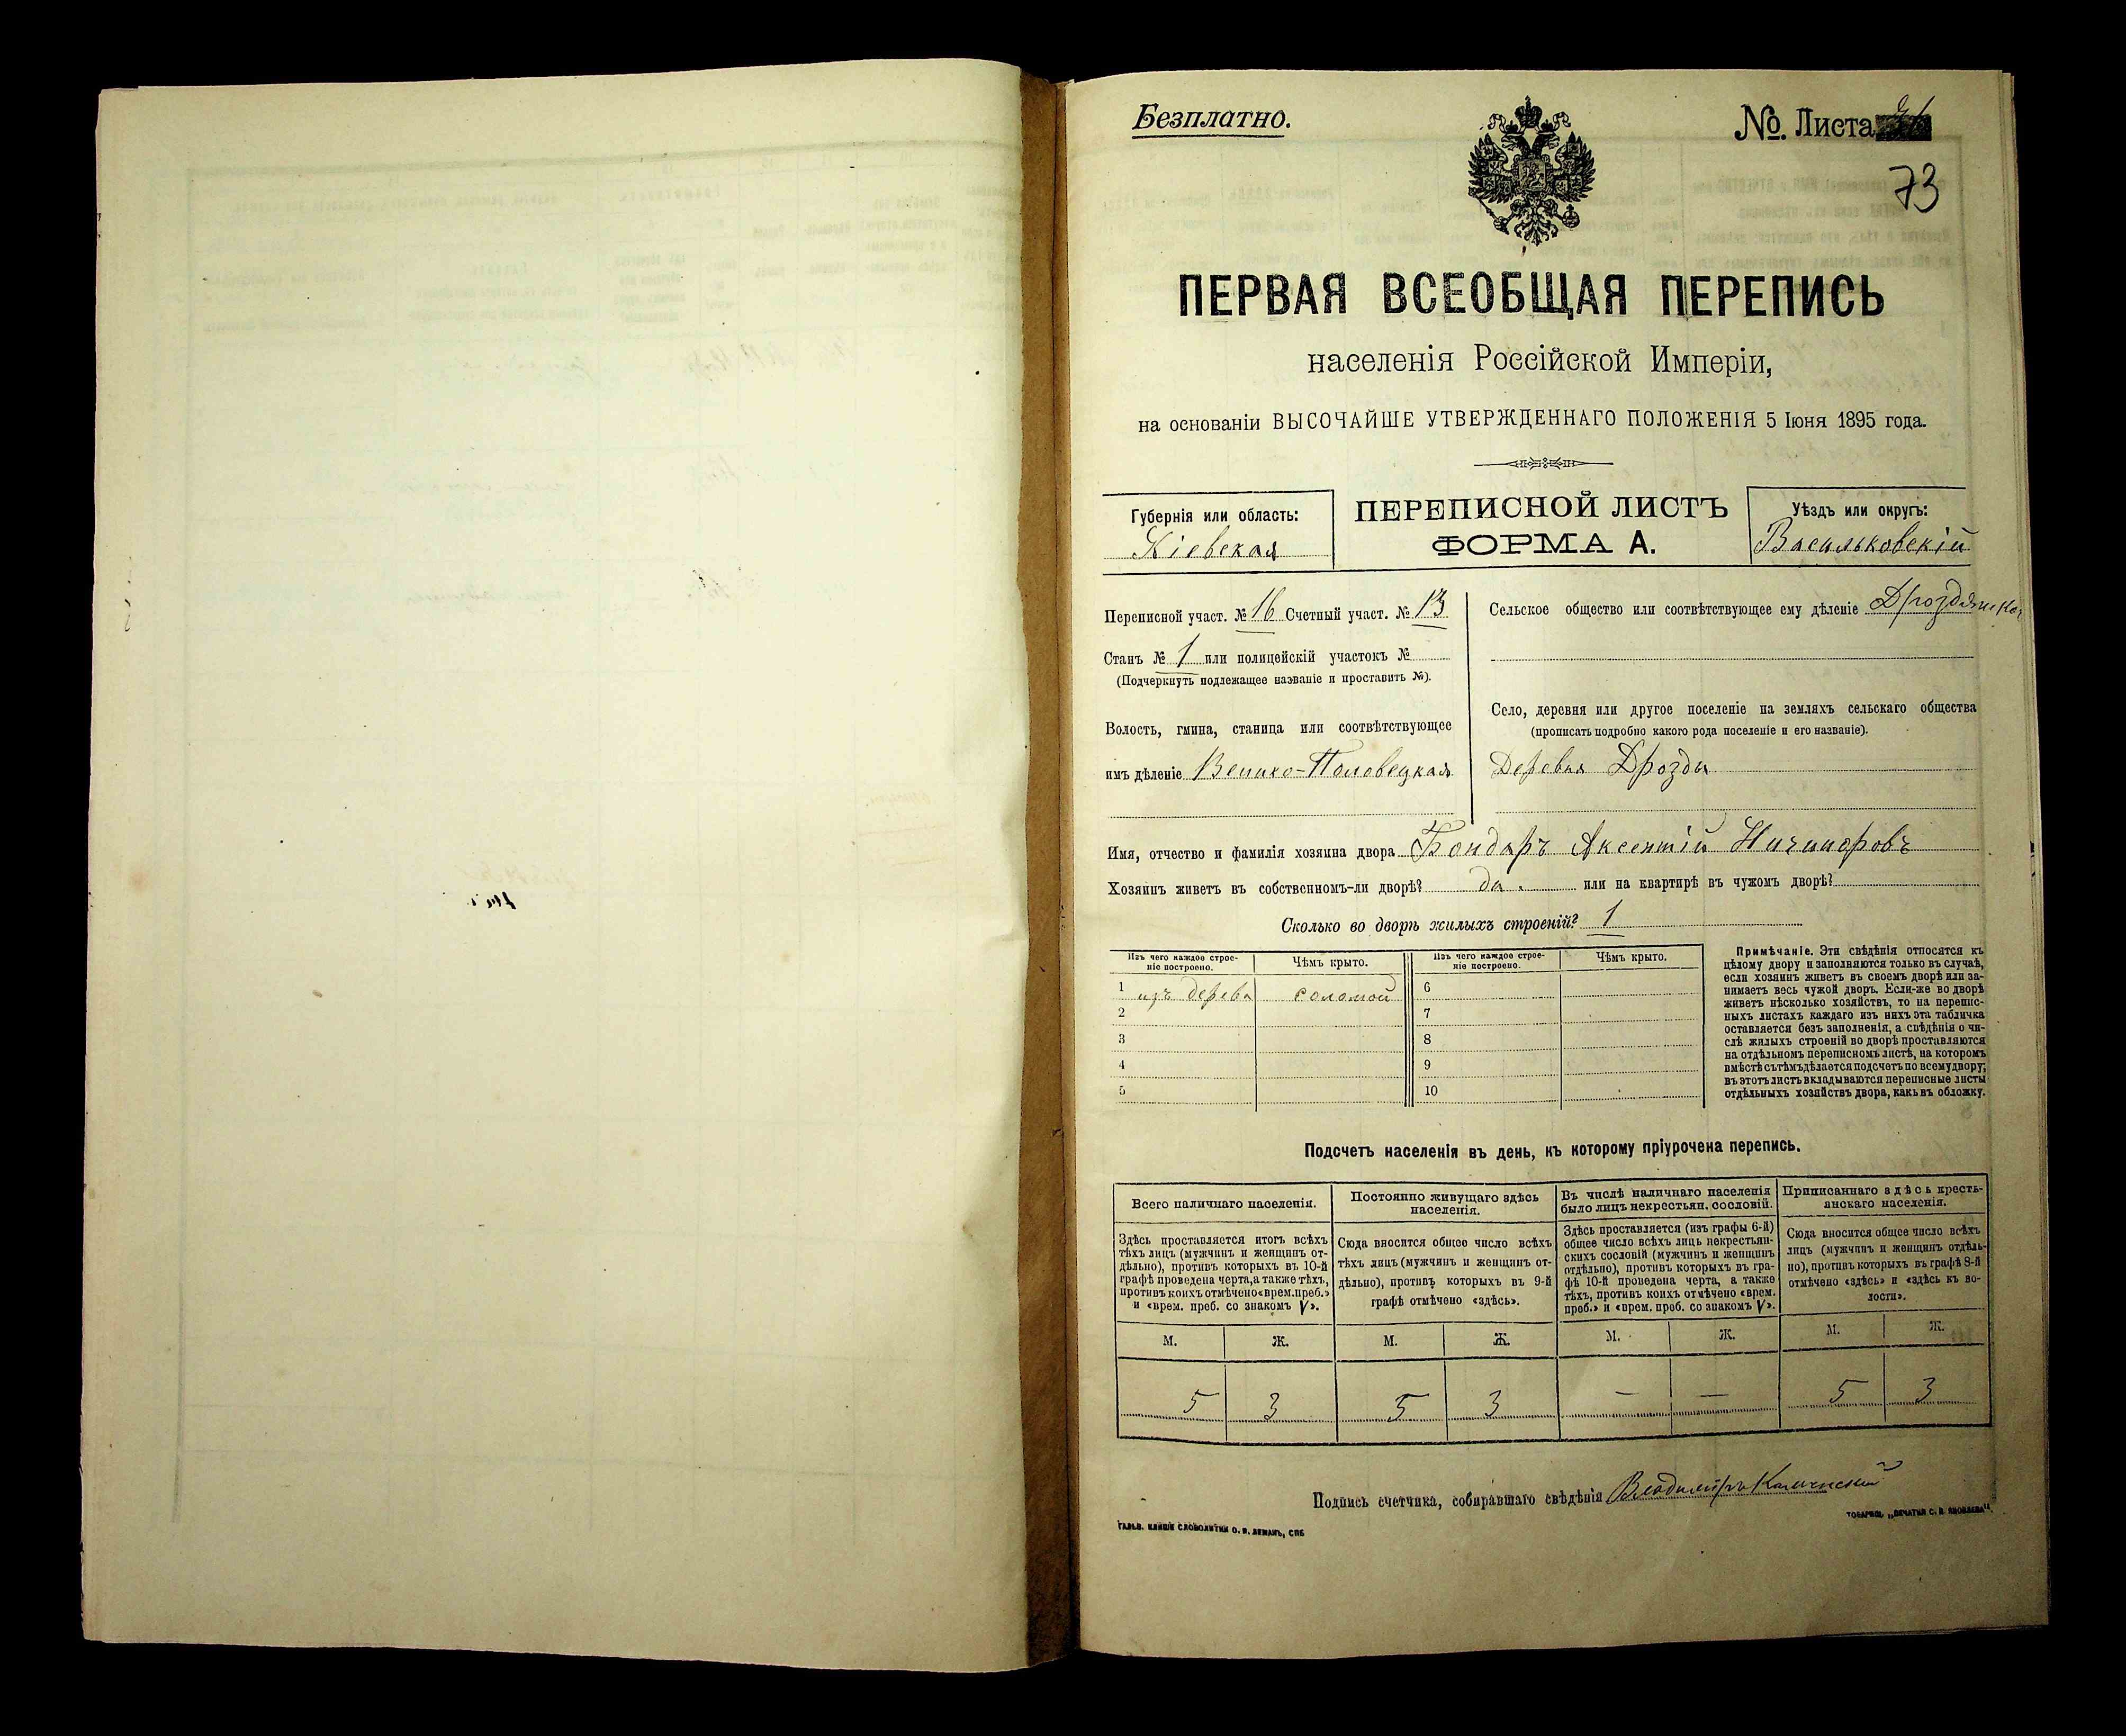 Безплатно.
№. Листа
73
ПЕРВАЯ ВСЕОБЩАЯ ПЕРЕПИСЬ
населенія Россійской Имперіи,
на основаніи ВЫСОЧАЙШЕ УТВЕРЖДЕННАГО ПОЛОЖЕНІЯ 5 Іюня 1895 года.
Губернія или область:
Кіевская
ПЕРЕПИСНОЙ ЛИСТЪ
ФОРМА А.
Уѣздъ или округъ:
Васильковскій
Переписной участ. № 16 Счетный участ. № 13
Станъ № 1 или полицейскій участокъ №
(Подчеркнуть подлежащее названіе и проставить №).
Волость, гмина, станица или соотвѣтствующее
имъ дѣленіе Велико-Половецкая
Сельское общество или соотвѣтствующее ему дѣленіе
Село, деревня или другое поселеніе на земляхъ сельскаго общества
(прописать подробно какого рода поселеніе и его названіе).
Деревня Дрозды
Имя, отчество и фамилія хозяина двора Бондарь Аксентій Ничипоровъ
Хозяинъ живетъ въ собственномъ-ли дворѣ? да. или на квартирѣ въ чужомъ дворѣ?
Сколько во дворѣ жилыхъ строеній? 1
Изъ чего каждое строе-
ніе построено.
Чѣмъ крыто.
Изъ чего каждое строе-
ніе построено.
Чѣмъ крыто.
1 изъ дерева соломой 6
2 7
3 8
4 9
5 10
Примѣчаніе. Эти свѣдѣнія относятся къ
цѣлому двору и заполняются только въ случаѣ,
если хозяинъ живетъ въ своемъ дворѣ или за-
нимаетъ весь чужой дворъ. Если-же во дворѣ
живетъ нѣсколько хозяйствъ, то на перепис-
ныхъ листахъ каждаго изъ нихъ эта табличка
оставляется безъ заполненія, а свѣдѣнія о чи-
слѣ жилыхъ строеній во дворѣ проставляются
на отдѣльномъ переписномъ листѣ, на которомъ
вмѣстѣ съ тѣмъ дѣлается подсчетъ по всему двору;
въ этотъ листъ вкладываются переписные листы
отдѣльныхъ хозяйствъ двора, какъ въ обложку.
Подсчетъ населенія въ день, къ которому пріурочена перепись.
Всего наличнаго населенія.
Здѣсь проставляется итогъ всѣхъ
тѣхъ лицъ (мужчинъ и женщинъ от-
дѣльно), противъ которыхъ въ 10-й
графѣ проведена черта, а также тѣхъ,
противъ коихъ отмѣчено «врем. преб.»
и «врем. преб. со знакомъ V».
Постоянно живущаго здѣсь
населенія.
Сюда вносится общее число всѣхъ
тѣхъ лицъ (мужчинъ и женщинъ от-
дѣльно), противъ которыхъ въ 9-й
графѣ отмѣчено «здѣсь».
Въ числѣ наличнаго населенія
было лицъ некрестьян. сословій.
Здѣсь проставляется (изъ графы 6-й)
общее число всѣхъ лицъ некрестьян-
скихъ сословій (мужчинъ и женщинъ
отдѣльно), противъ которыхъ въ гра-
фѣ 10-й проведена черта, а также
тѣхъ, противъ коихъ отмѣчено «врем.
преб.» и «врем. преб. со знакомъ V».
Приписаннаго здѣсь кресть-
янскаго населенія.
Сюда вносится общее число всѣхъ
лицъ (мужчинъ и женщинъ отдѣль-
но), противъ которыхъ въ графѣ 8-й
отмѣчено «здѣсь» и «здѣсь къ во-
лости».
М. Ж. М. Ж. М. Ж. М. Ж.
5 3 5 3 — — 5 3
Подпись счетчика, собиравшаго свѣдѣнія Владиміръ
ГАЛЬВ. КЛИШЕ СЛОВОЛИТНИ О. И. ЛЕМАНЪ, СПБ
ТОВАРИЩ. „ПЕЧАТНЯ С. П. ЯКОВЛЕВА".